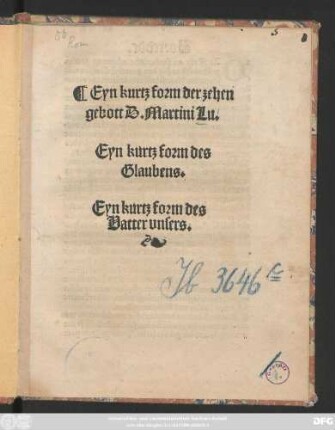 ¶ Eyn kurtz form der zehen
gebott D. Martini Lu.
Eyn kurtz form des
Glaubens.
Eyn kurtz form des
Vatter vnsers.
Jb 3646